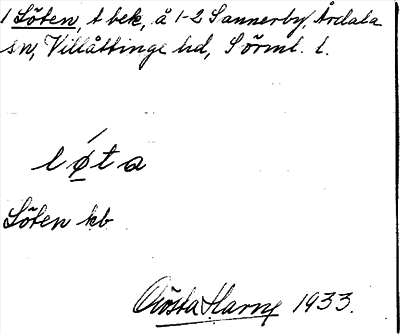 1 Löten, t bek, å 1-2 Sannerby, Årdala
sn, Villåttinge hd, Sörml. l.
løta
Löten kb
Gösta Harne 1933.